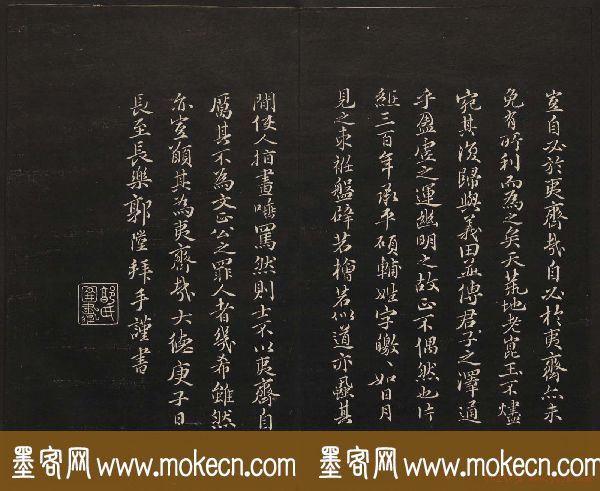 豈自必於夷齊哉自必於夷齊然未
免有所利而為之矣天荒地老崑玉不燼
宛其復歸與義田並傳君子之澤通
乎盈虛之運幽明之故正不偶然也
三百年承平碩輔姓字皦、如日月
見之束裝盤礴若檜若似道亦厠其
間使人指畫唾罵然則士不以夷齊自
厲其不為文正公之罪人者幾希雖然
亦豈顓其為夷齊哉大德庚子日
長至長樂鄭陞拜手謹書
墨客网 www.mokecn.com
墨客网 www.mokecn.com